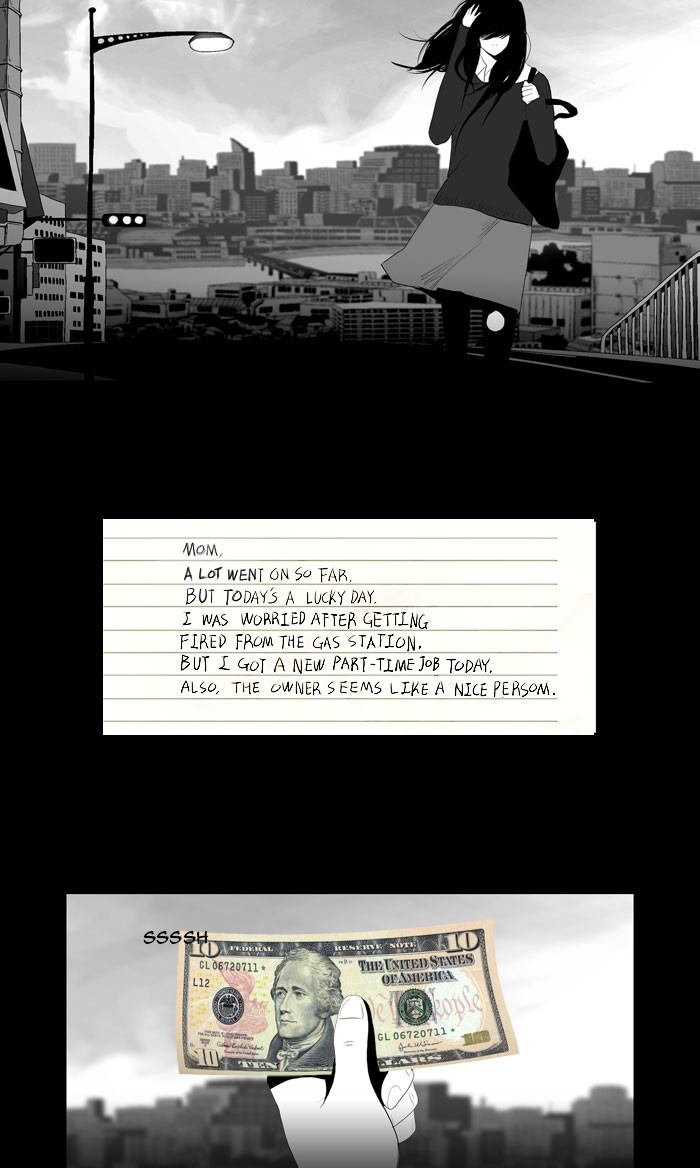 MOM,
A LOT WENT ON SO FAR.
BUT TODAY'S A LUCKY DAY.
I WAS WORRIED AFTER GETTING
FIRED FROM THE GAS STATION.
BUT I GOT A NEW PART-TIME JOB TODAY.
ALSO, THE OWNER SEEMS LIKE A NICE PERSOM.
SSSSH
10 FEDERAL RESERVE NOTE 10
THE UNITED STATES
OF AMERICA
GL 06720711 *
L12
GL 06720711 *
10 TEN